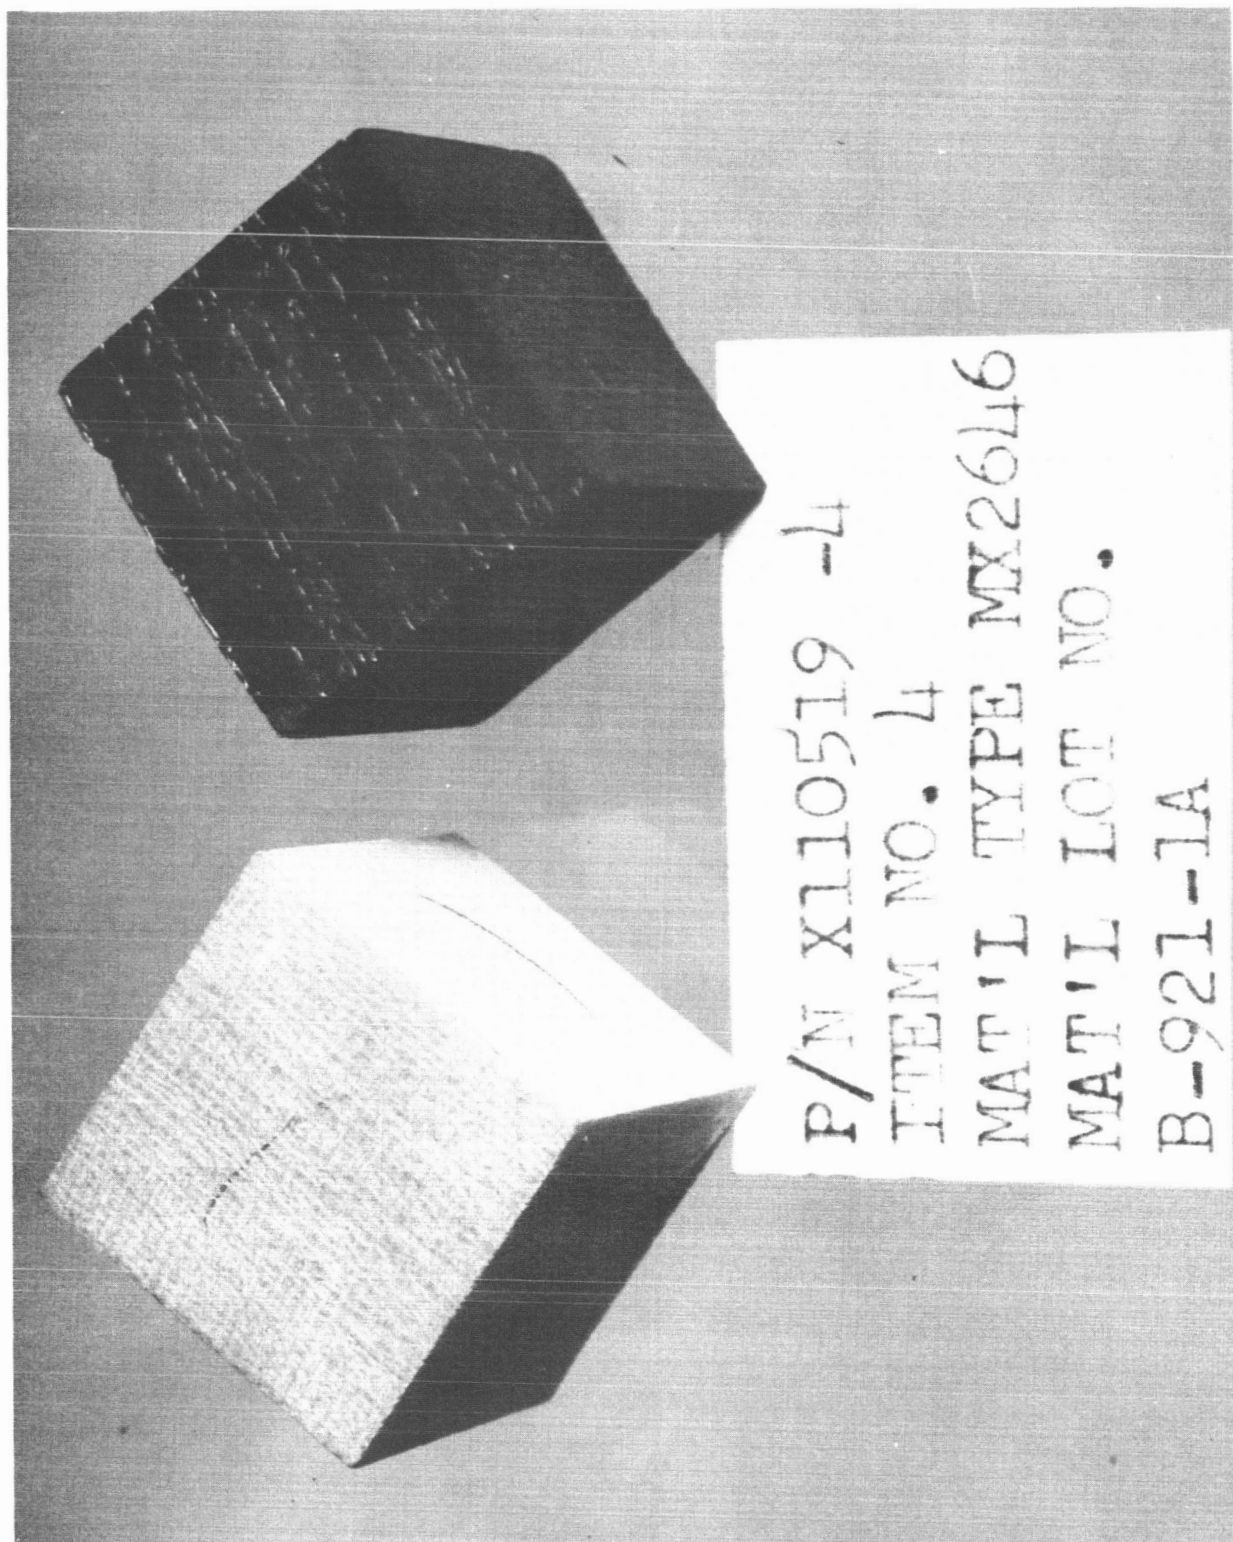 P/N X110519 -4
ITEM NO. 4
MAT'L TYPE MX2646
MAT'L LOT NO.
B-921-1A